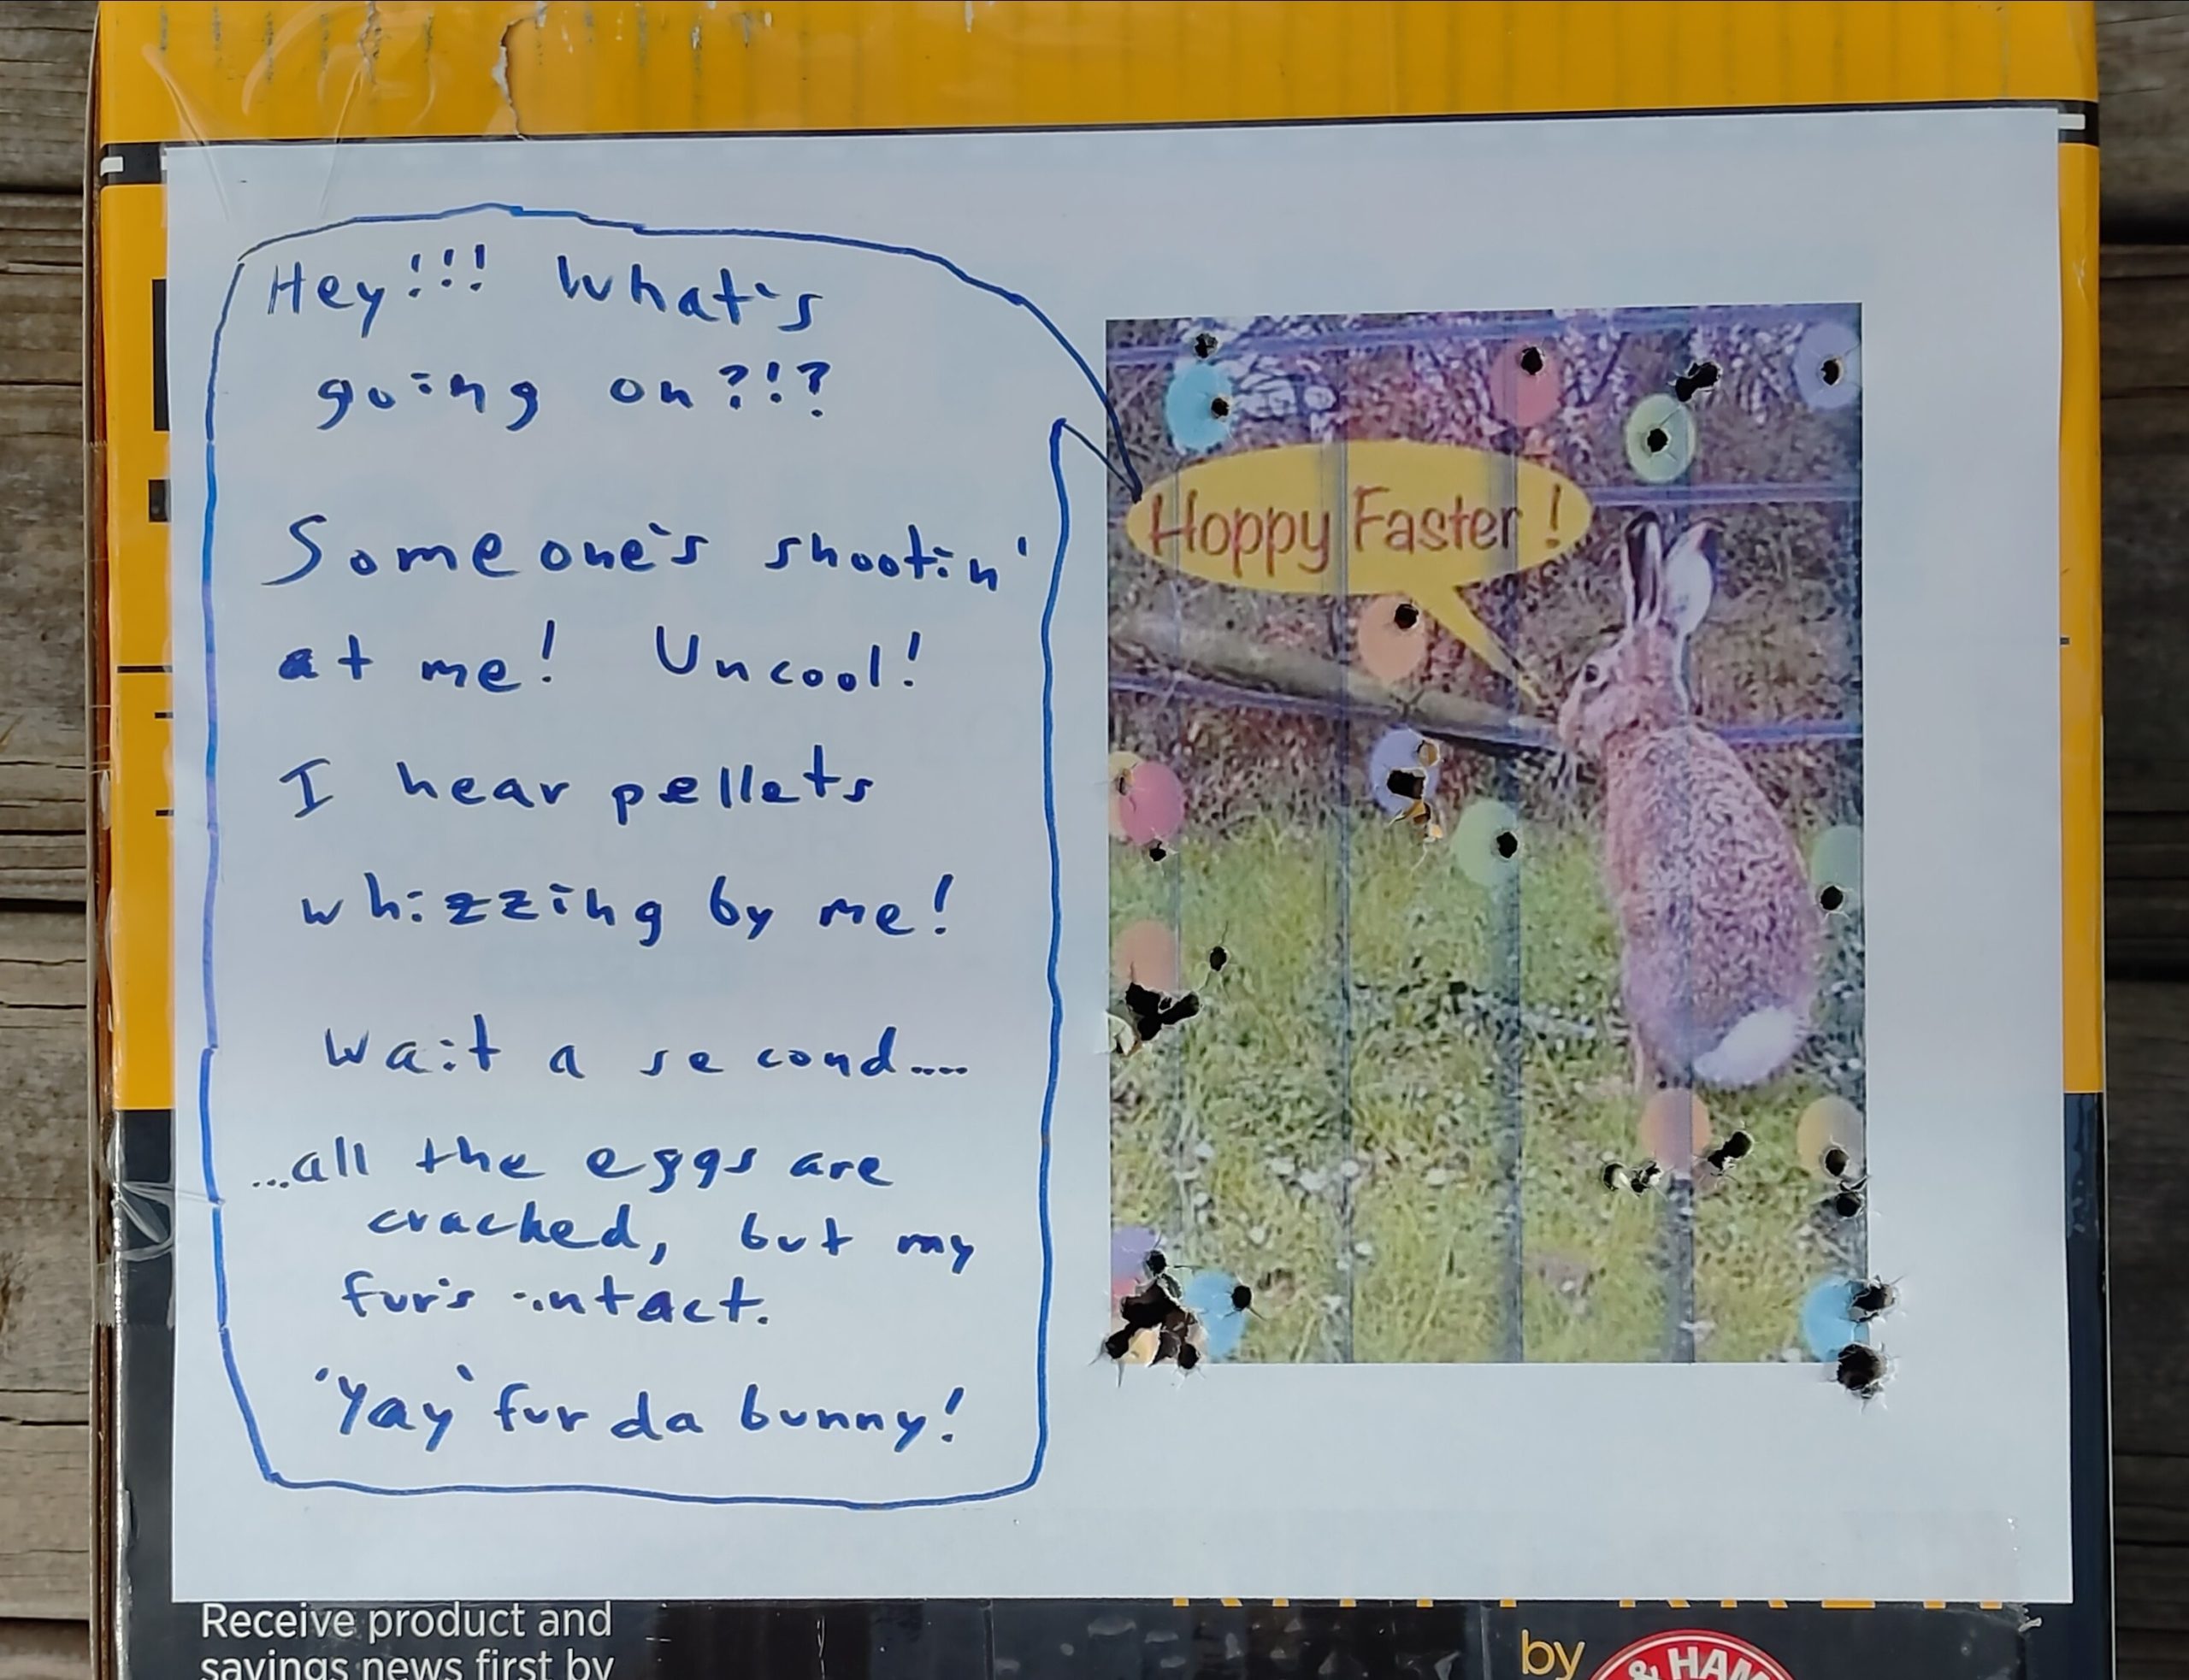 Hey!!! What's
going on?!?
Someone's shootin'
at me! Uncool!
I hear pellets
whizzing by me!
Wait a second....
...all the eggs are
cracked, but my
fur's intact.
'Yay' fur da bunny!
Hoppy Easter!
Receive product and
savings news first by
by
& HAM